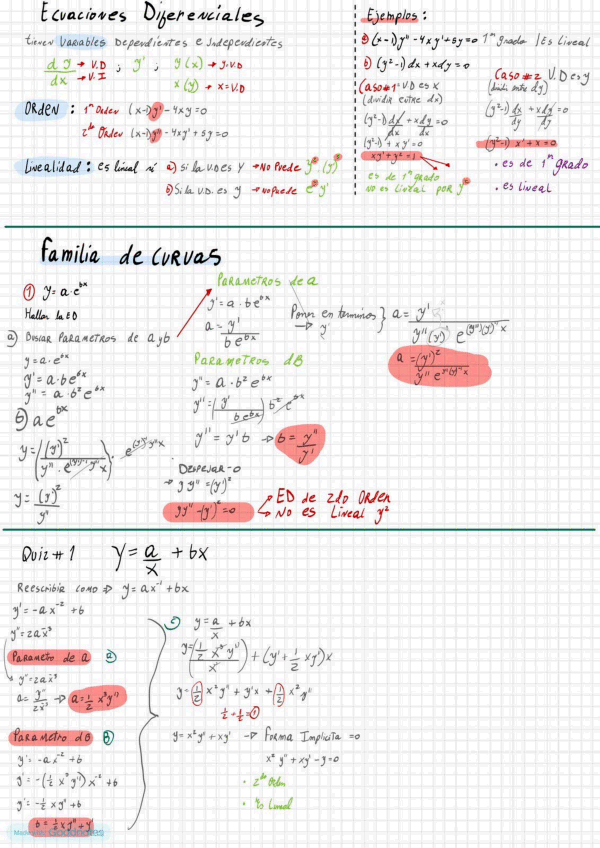 Ecuaciones Diferenciales
tienen Variables Dependientes e Independientes
dy → V.D ; y' ; y(x) → y=V.D
dx → V.I x(y) → x=V.D
Orden : 1er Orden (x-1)y' - 4xy=0
2do Orden (x-1)y'' - 4xy'+5y=0
Linealidad : es lineal si a) Si la V.D es Y → No Puede y², (y')²
b) Si la V.D. es y → no puede e^y y'
Ejemplos :
a) (x-1)y'' - 4xy'+5y=0 1er grado | Es Lineal
b) (y²-1)dx + xdy=0
Caso #1 V.D es x
(dividir entre dx)
(y²-1)dx/dx + xdy/dx=0
(y²-1) + xy'=0
xy'+y²=1
es de 1er grado
no es Lineal por y²
Caso #2 V.D es y
(dividir entre dy)
(y²-1)dx/dy + xdy/dy=0
(y²-1)x'+x=0
• es de 1er grado
• es Lineal
Familia de CURVAS
① y=a·e^bx
Hallar la ED
a) Buscar Parametros de a y b
y=a·e^bx
y'=a·be^bx
y''=a·b²e^bx
b) ae^bx
y=((y')²/(y''·e^(y')⁻¹y''x))·e^(y')⁻¹y''x
y=(y')²/y''
Parametros de a
y'=a·be^bx
a=y'/be^bx
Poner en terminos → y'
a=y'/(y''(y')⁻¹e^(y'')(y')⁻¹x)
a=(y')²/(y''e^(y')⁻¹y''x)
Parametros dB
y''=a·b²e^bx
y''=(y'/be^bx)b²e^bx
y''=y'b → b=y''/y'
Despejar=0
→ yy''=(y')²
yy''-(y')²=0
→ ED de 2do Orden
→ No es Lineal y²
Quiz #1 Y=a/x + bx
Reescribir como ⇒ y=ax⁻¹+bx
y'=-ax⁻²+b
y''=2ax⁻³
Parametro de a a
y''=2ax⁻³
a=y''/2x⁻³ → a=1/2 x³y''
Parametro dB B
y'=-ax⁻²+b
y'=-(1/2 x³y'')x⁻²+b
y'=-1/2 xy''+b
b=1/2 xy''+y'
c y=a/x + bx
y=(1/2 x³y''/x)+(y'+1/2 xy'')x
y=1/2 x²y''+y'x+1/2 x²y''
1/2+1/2=1
y=x²y''+xy' → Forma Implicita =0
x²y''+xy'-y=0
• 2do Orden
• Es Lineal